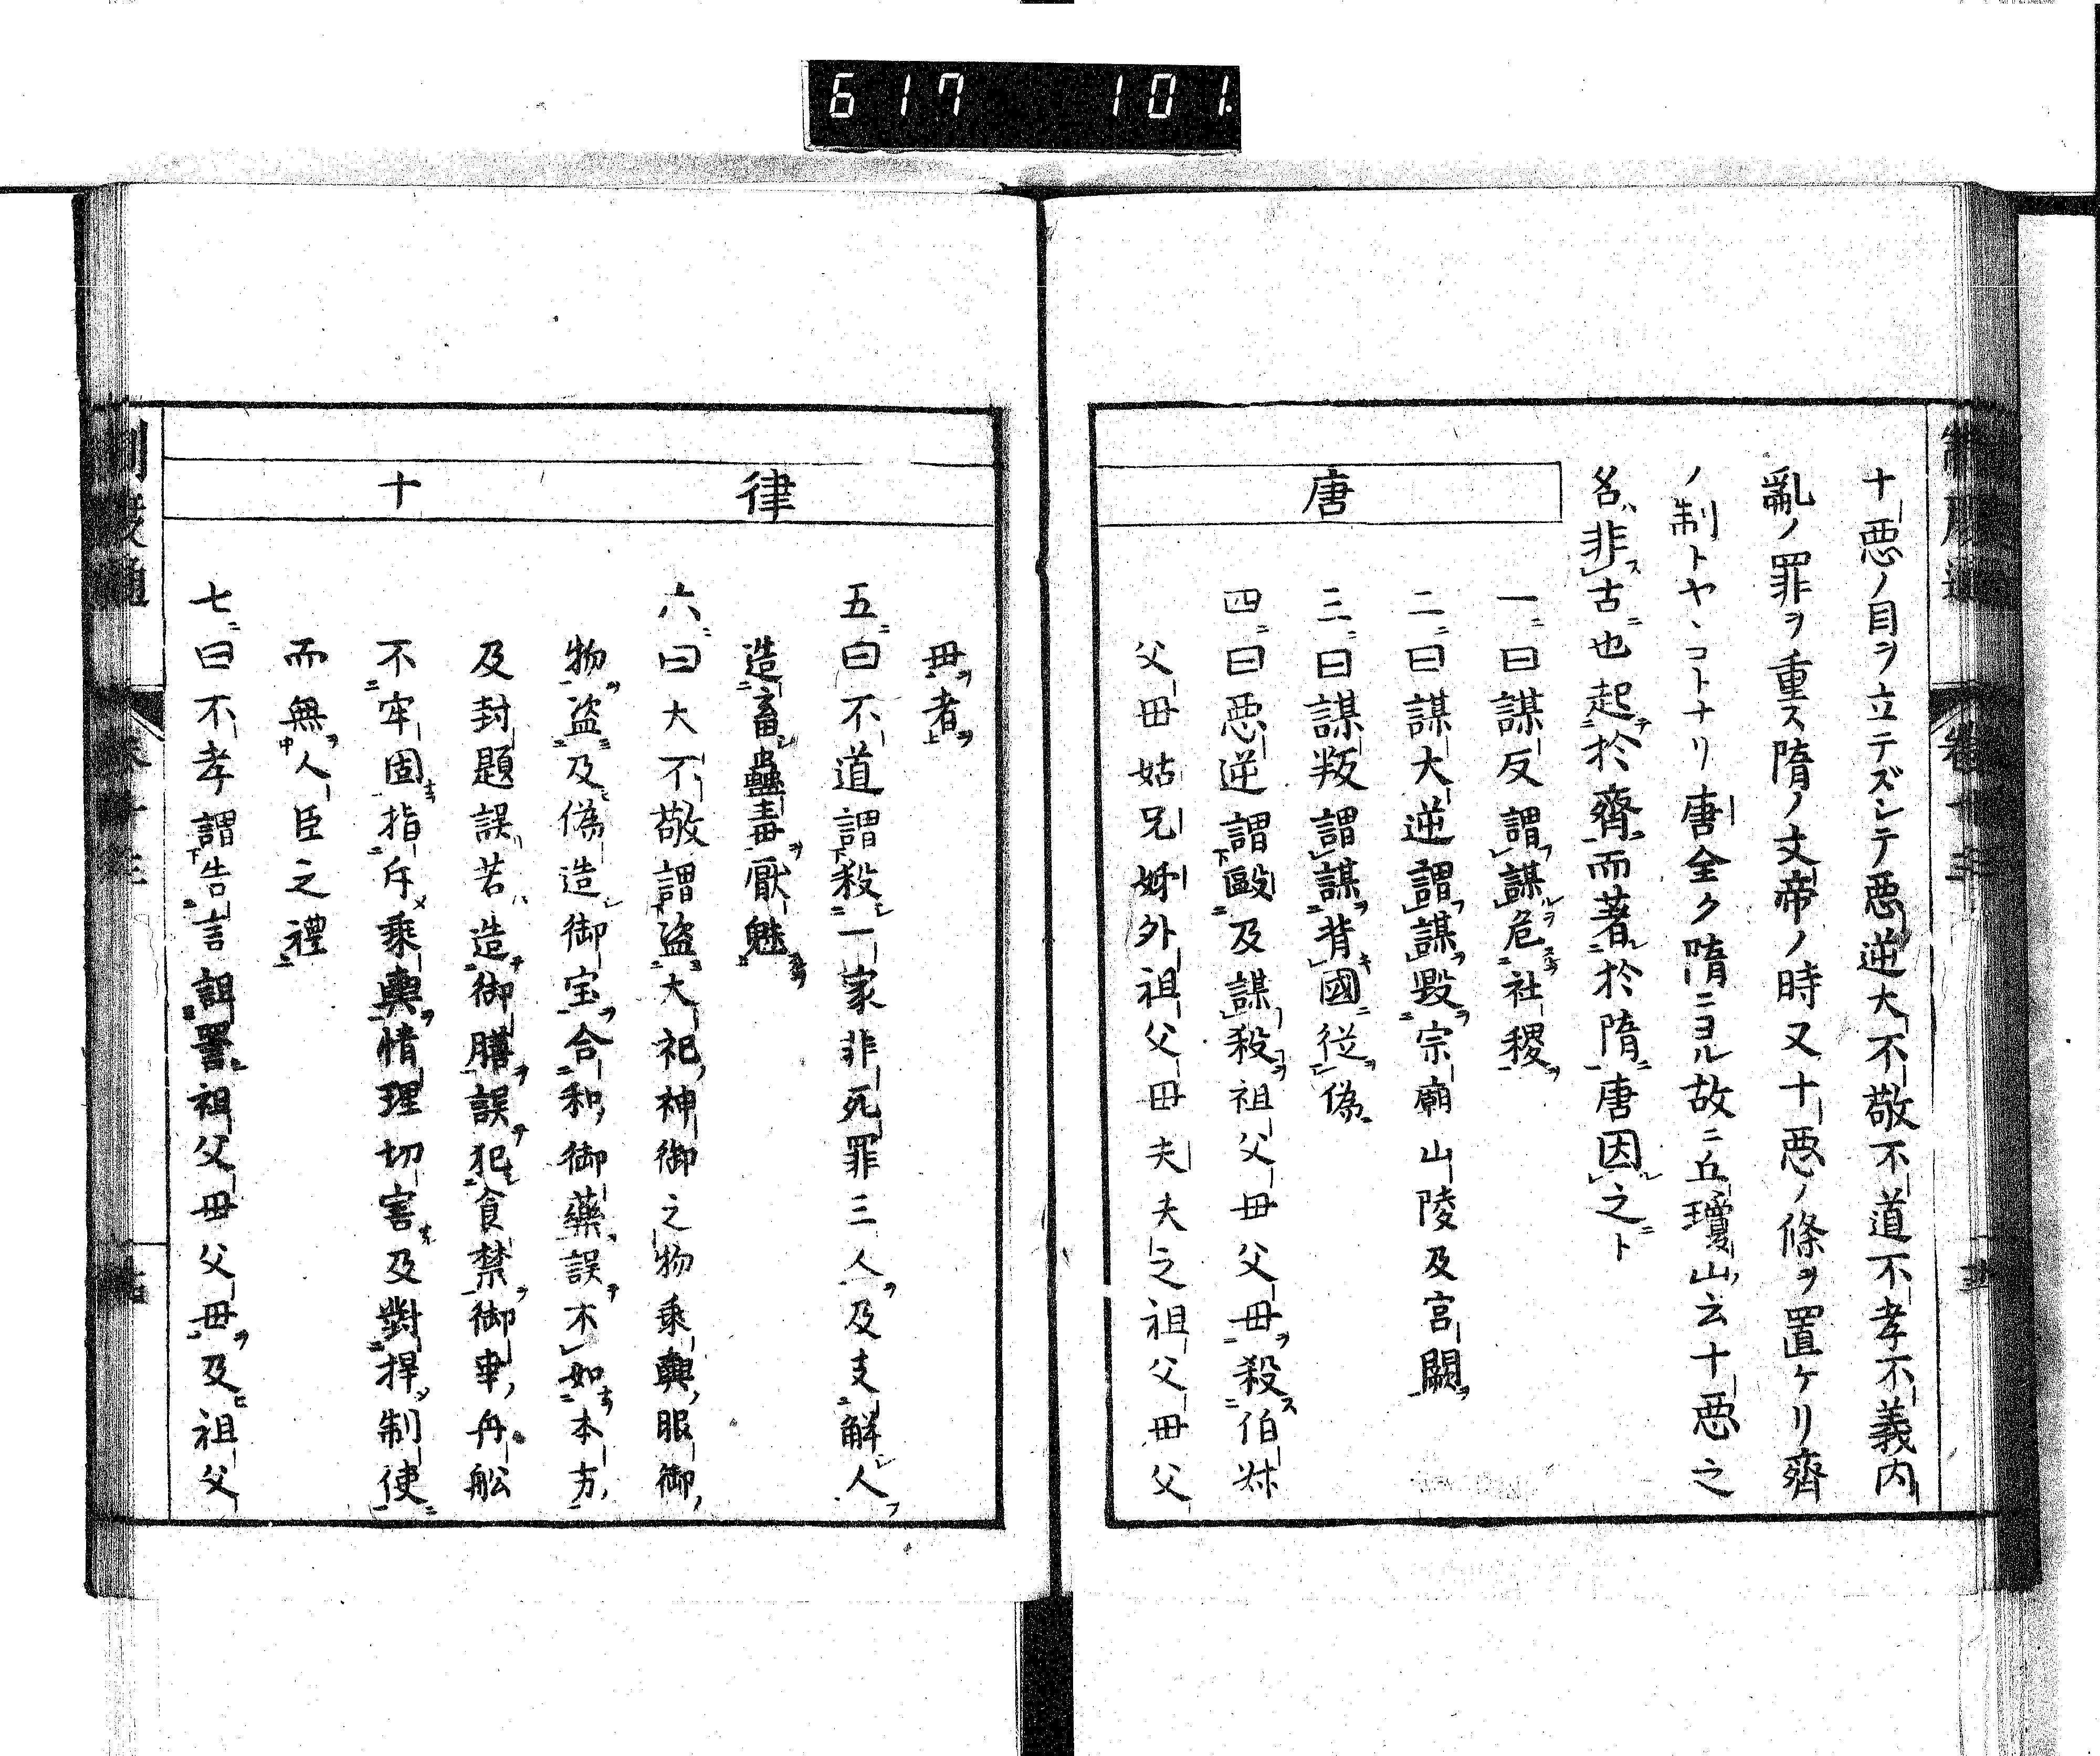 617 101
十惡ノ目ヲ立テズシテ惡逆大不敬不道不孝不義内
亂ノ罪ヲ重ス隋ノ文帝ノ時又十惡ノ條ヲ置ケリ齊
ノ制トヤヽコトナリ唐全ク隋ニヨル故ニ丘瓊山云十惡之
名非古也起於齊而著於隋唐因之ト
唐
一曰謀反謂謀危社稷
二曰謀大逆謂謀毀宗廟山陵及宮闕
三曰謀叛謂謀背國從偽
四曰惡逆謂毆及謀殺祖父母父母殺伯叔
父母姑兄姊外祖父母夫夫之祖父母父
律
十
母者
五曰不道謂殺一家非死罪三人及支解人
造畜蠱毒厭魅
六曰大不敬謂盜大祀神御之物乘輿服御
物盜及偽造御宝合和御藥誤不如本方
及封題誤若造御膳誤犯食禁御幸舟舩
不牢固指斥乘輿情理切害及對捍制使
而無人臣之禮
七曰不孝謂告言詛詈祖父母父母及祖父